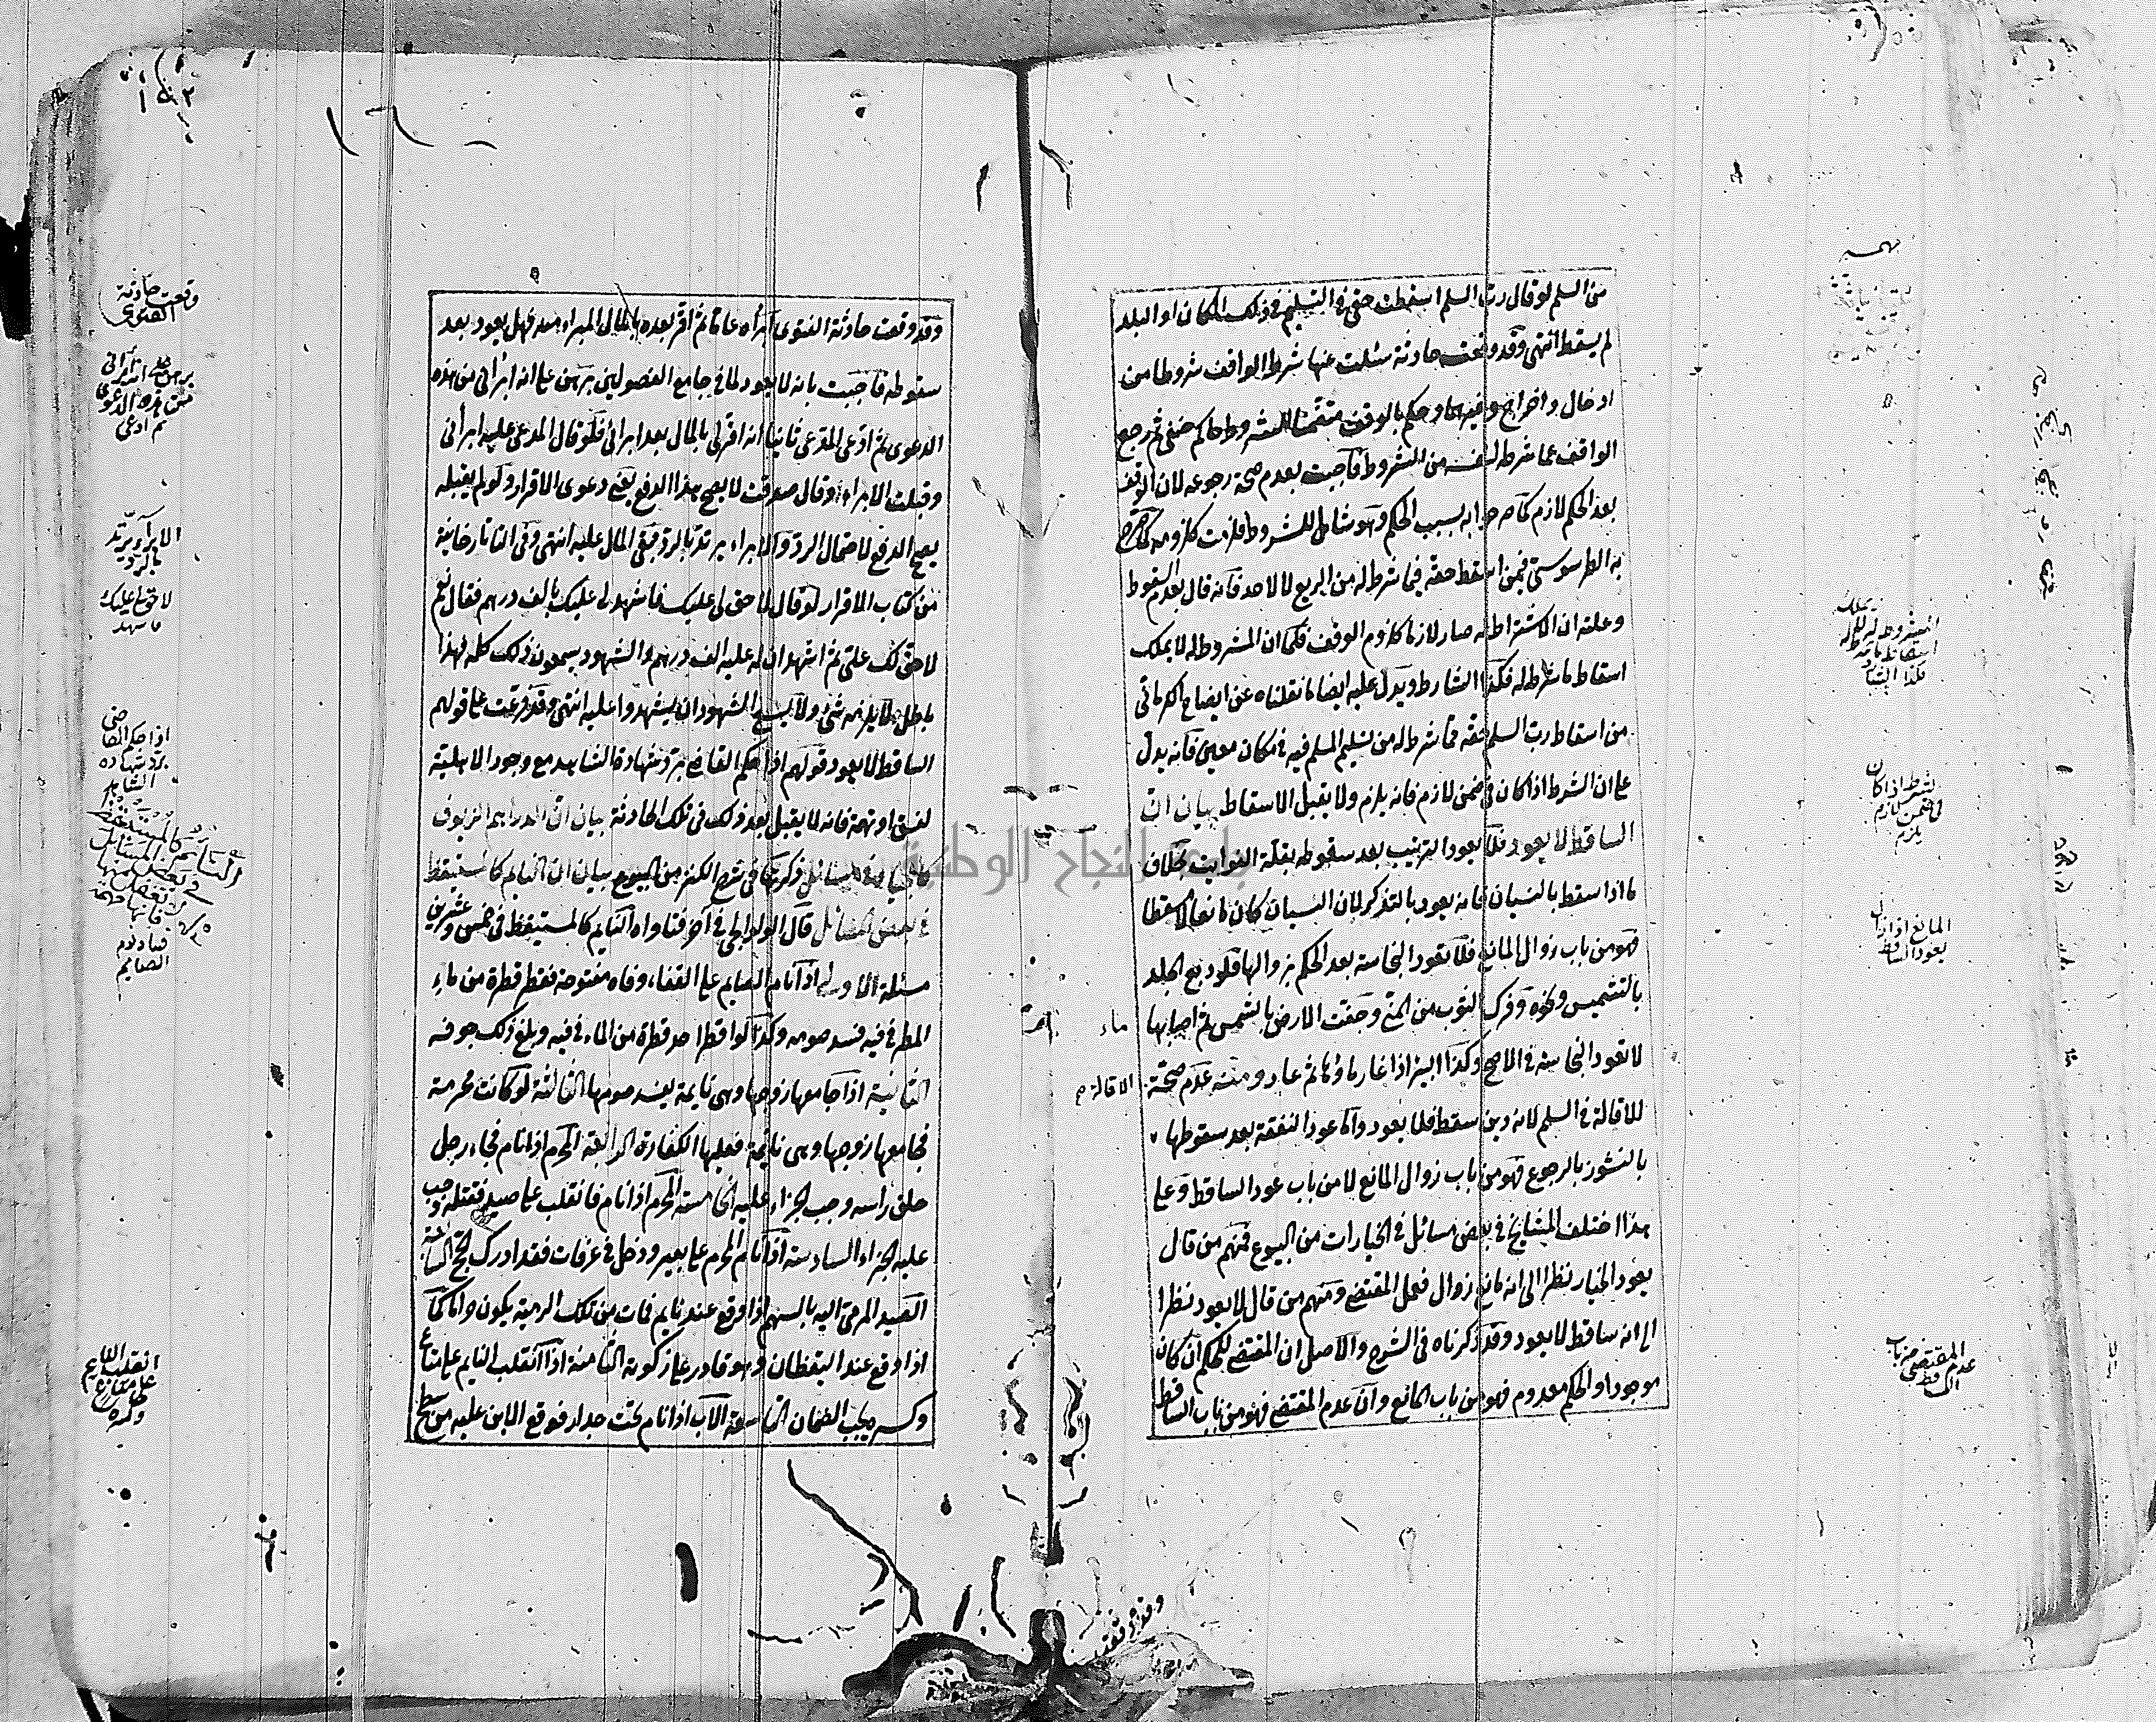 من السلم لو قال رب السلم اسقطت حقي في التسليم في ذلك المكان او البلد
لم يسقط انتهى وقد وقعت حادثة سئلت عنها شرط الواقف شروطا من
ادخال واخراج وغيرهما وحكم بالوقف متضمنا للشروط حاكم حنفي ثم رجع
الواقف عما شرطه لنفسه من الشروط فاجبت بعدم صحة رجوعه لان الوقف
بعد الحكم لازم كما صرحوا به بسبب الحكم وهو شامل للشروط فلزمت كلزومه كما صرح
به الطرسوسي فيمن اسقط حقه فيما شرط له من الريع لا لاحد فانه قال بعدم السقوط
وعلته ان الاشتراط له صار لازما كلزوم الوقف فكما ان المشروط له لا يملك
اسقاط ما شرط له فكذا الشارط ويدل عليه ايضا ما نقلناه عن ايضاح الكرماني
من اسقاط رب السلم حقه مما شرط له من تسليم المسلم فيه في مكان معين فانه يدل
على ان الشرط اذا كان في ضمن لازم فانه يلزم ولا يقبل الاسقاط بيان ان
الساقط لا يعود فلا يعود الترتيب بعد سقوطه بقلة الفوائت بخلاف
ما اذا سقط بالنسيان فانه يعود بالتذكر لان النسيان كان مانعا لا مسقطا
فهو من باب زوال المانع فلا تعود النجاسة بعد الحكم بزوالها فلو دبغ الجلد
بالتشميس ونحوه وفرك الثوب من المني وجفت الارض بالشمس ثم اصابها
ماء
لا تعود النجاسة في الاصح وكذا البئر اذا غار ماؤها ثم عاد ومنه عدم صحة
الاقالة
للاقالة في السلم لانه دين سقط فلا يعود واما عود النفقة بعد سقوطها
بالنشوز بالرجوع فهو من باب زوال المانع لا من باب عود الساقط وعلى
هذا اختلف المشايخ في بعض مسائل في الخيارات من البيوع فمنهم من قال
يعود الخيار نظرا الى انه مانع زوال فعمل المقتضي ومنهم من قال لا يعود نظرا
الى انه ساقط لا يعود وقد ذكرناه في الشرح والاصل ان المقتضي للحكم ان كان
موجودا والحكم معدوم فهو من باب المانع وان عدم المقتضي فهو من باب الساقط
مهمة
المشروط له
الشرط اذا كان
في ضمن لازم
يلزم
المانع اذا زال
يعود الساقط
المقتضي من باب
عدم
وقد وقعت حادثة الفتوى ابراه عاما ثم اقر بعده بالمال المبرا منه فهل يعود بعد
سقوطه فاجبت بانه لا يعود لما في جامع الفصولين برهن على انه ابراني من هذه
الدعوى ثم ادعى المدعي ثانيا انه اقر لي بالمال بعد ابرائي فلو قال المدعى عليه ابراني
وقبلت الابراء وقال صدقت لا يصح هذا الدفع يعني دعوى الاقرار ولو لم يقبله
يصح الدفع لاحتمال الرد والابراء يرتد بالرد فبقي المال عليه انتهى وفي التاتارخانية
من كتاب الاقرار لو قال لا حق لي عليك فاشهد لي عليك بالف درهم فقال نعم
لا حق لك علي ثم اشهد ان له عليه الف درهم والشهود يسمعون ذلك كله فهذا
باطل لا يلزمه شيء ولا يسع الشهود ان يشهدوا عليه انتهى وقد فرعت على قولهم
الساقط لا يعود قولهم اذا حكم القاضي برد شهادة الشاهد مع وجود الاهلية
لفسق او تهمة فانه لا يقبل بعد ذلك في تلك الحادثة بيان ان الدراهم الزيوف
كالجياد في مسائل ذكرتها في شرح الكنز من البيوع بيان ان النايم كالمستيقظ
في بعض المسائل قال الولوالجي في آخر فتاواه النايم كالمستيقظ في خمس وعشرين
مسئلة الاولى اذا نام الصايم على القفاء وفاه مفتوحة فقطر قطرة من ماء
المطر في فيه فسد صومه وكذا لو اقطر احد قطرة من الماء في فيه وبلغ ذلك جوفه
الثانية اذا جامعها زوجها وهي نايمة يفسد صومها الثالثة لو كانت محرمة
فجامعها زوجها وهي نايمة فعليها الكفارة الرابعة المحرم اذا نام فجاء رجل
حلق راسه وجب الجزاء عليه الخامسة المحرم اذا نام فانقلب على صيد فقتله وجب
عليه الجزاء السادسة اذا نام المحرم على بعير ودخل في عرفات فقد ادرك الحج السابعة
الصيد المرمي اليه بالسهم اذا وقع عند نايم فمات من تلك الرمية يكون حراما كما
اذا وقع عند اليقظان وهو قادر على زكوته الثامنة اذا انقلب النايم على متاع
وكسره يجب الضمان التاسعة الاب اذا نام تحت جدار فوقع الابن عليه من سطح
وقعت حادثة
الفتوى
برهن على انه ابراني
من هذه الدعوى
ثم ادعى
الابراء يرتد
بالرد
لا حق لي عليك
فاشهد
اذا حكم القاضي
برد شهادة
الشاهد
النايم كالمستيقظ
في بعض المسائل
فساد صوم
الصايم
انقلب النايم
على متاع
وكسره
جامعة النجاح الوطنية